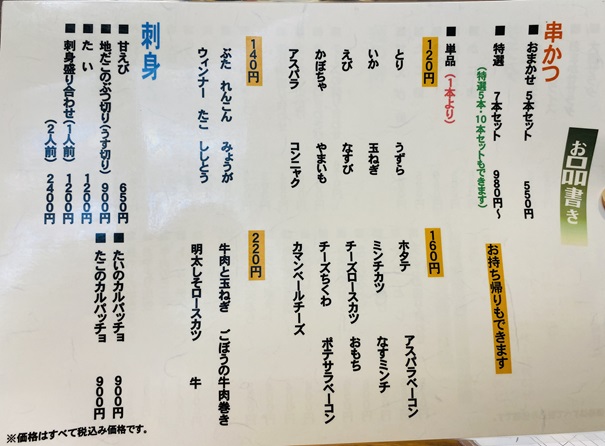 お品書き
串かつ
■おまかせ 5本セット 550円
■特選 7本セット 980円～
(特選5本・10本セットもできます)
お持ち帰りもできます
■単品(1本より)
120円
とり うずら
いか 玉ねぎ
えび なすび
かぼちゃ やまいも
アスパラ コンニャク
160円
ホタテ アスパラベーコン
ミンチカツ なすミンチ
チーズロースカツ おもち
チーズちくわ ポテサラベーコン
カマンベールチーズ
140円
ぶた れんこん みょうが
ウィンナー たこ ししとう
220円
牛肉と玉ねぎ ごぼうの牛肉巻き
明太しそロースカツ 牛
刺身
■甘えび 650円
■地だこのぶつ切り(うす切り) 900円
■たい 1200円
■刺身盛り合わせ(1人前) 1200円
(2人前) 2400円
■たいのカルパッチョ 900円
■たこのカルパッチョ 900円
※価格はすべて税込み価格です。